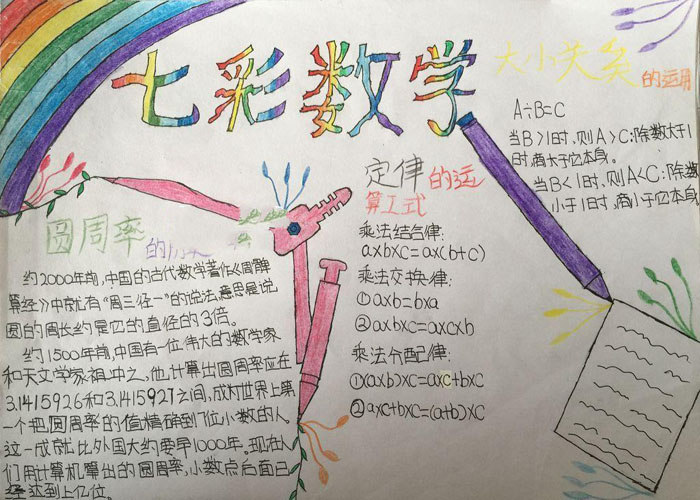 七彩数学
大小关系的运用
A÷B=C
当B>1时,则A>C:除数大于1
时,商大于它本身。
当B<1时,则A<C:除数
小于1时,商小于它本身
定律的运
算工式
乘法结合律:
a×b×c=a×(b+c)
乘法交换律:
①a×b=b×a
②a×b×c=a×c×b
乘法分配律:
①(a×b)×c=a×c+b×c
②a×c+b×c=(a+b)×c
圆周率的历
约2000年前,中国的古代数学著作《周髀
算经》中就有“周三径一”的说法,意思是说
圆的周长约是它的直径的3倍。
约1500年前,中国有一位伟大的数学家
和天文学家祖冲之,他计算出圆周率应在
3.1415926和3.1415927之间,成为世界上第
一个把圆周率的值精确到7位小数的人。
这一成就比外国大约要早1000年。现在人
们用计算机算出的圆周率,小数点后面已
经达到上亿位。